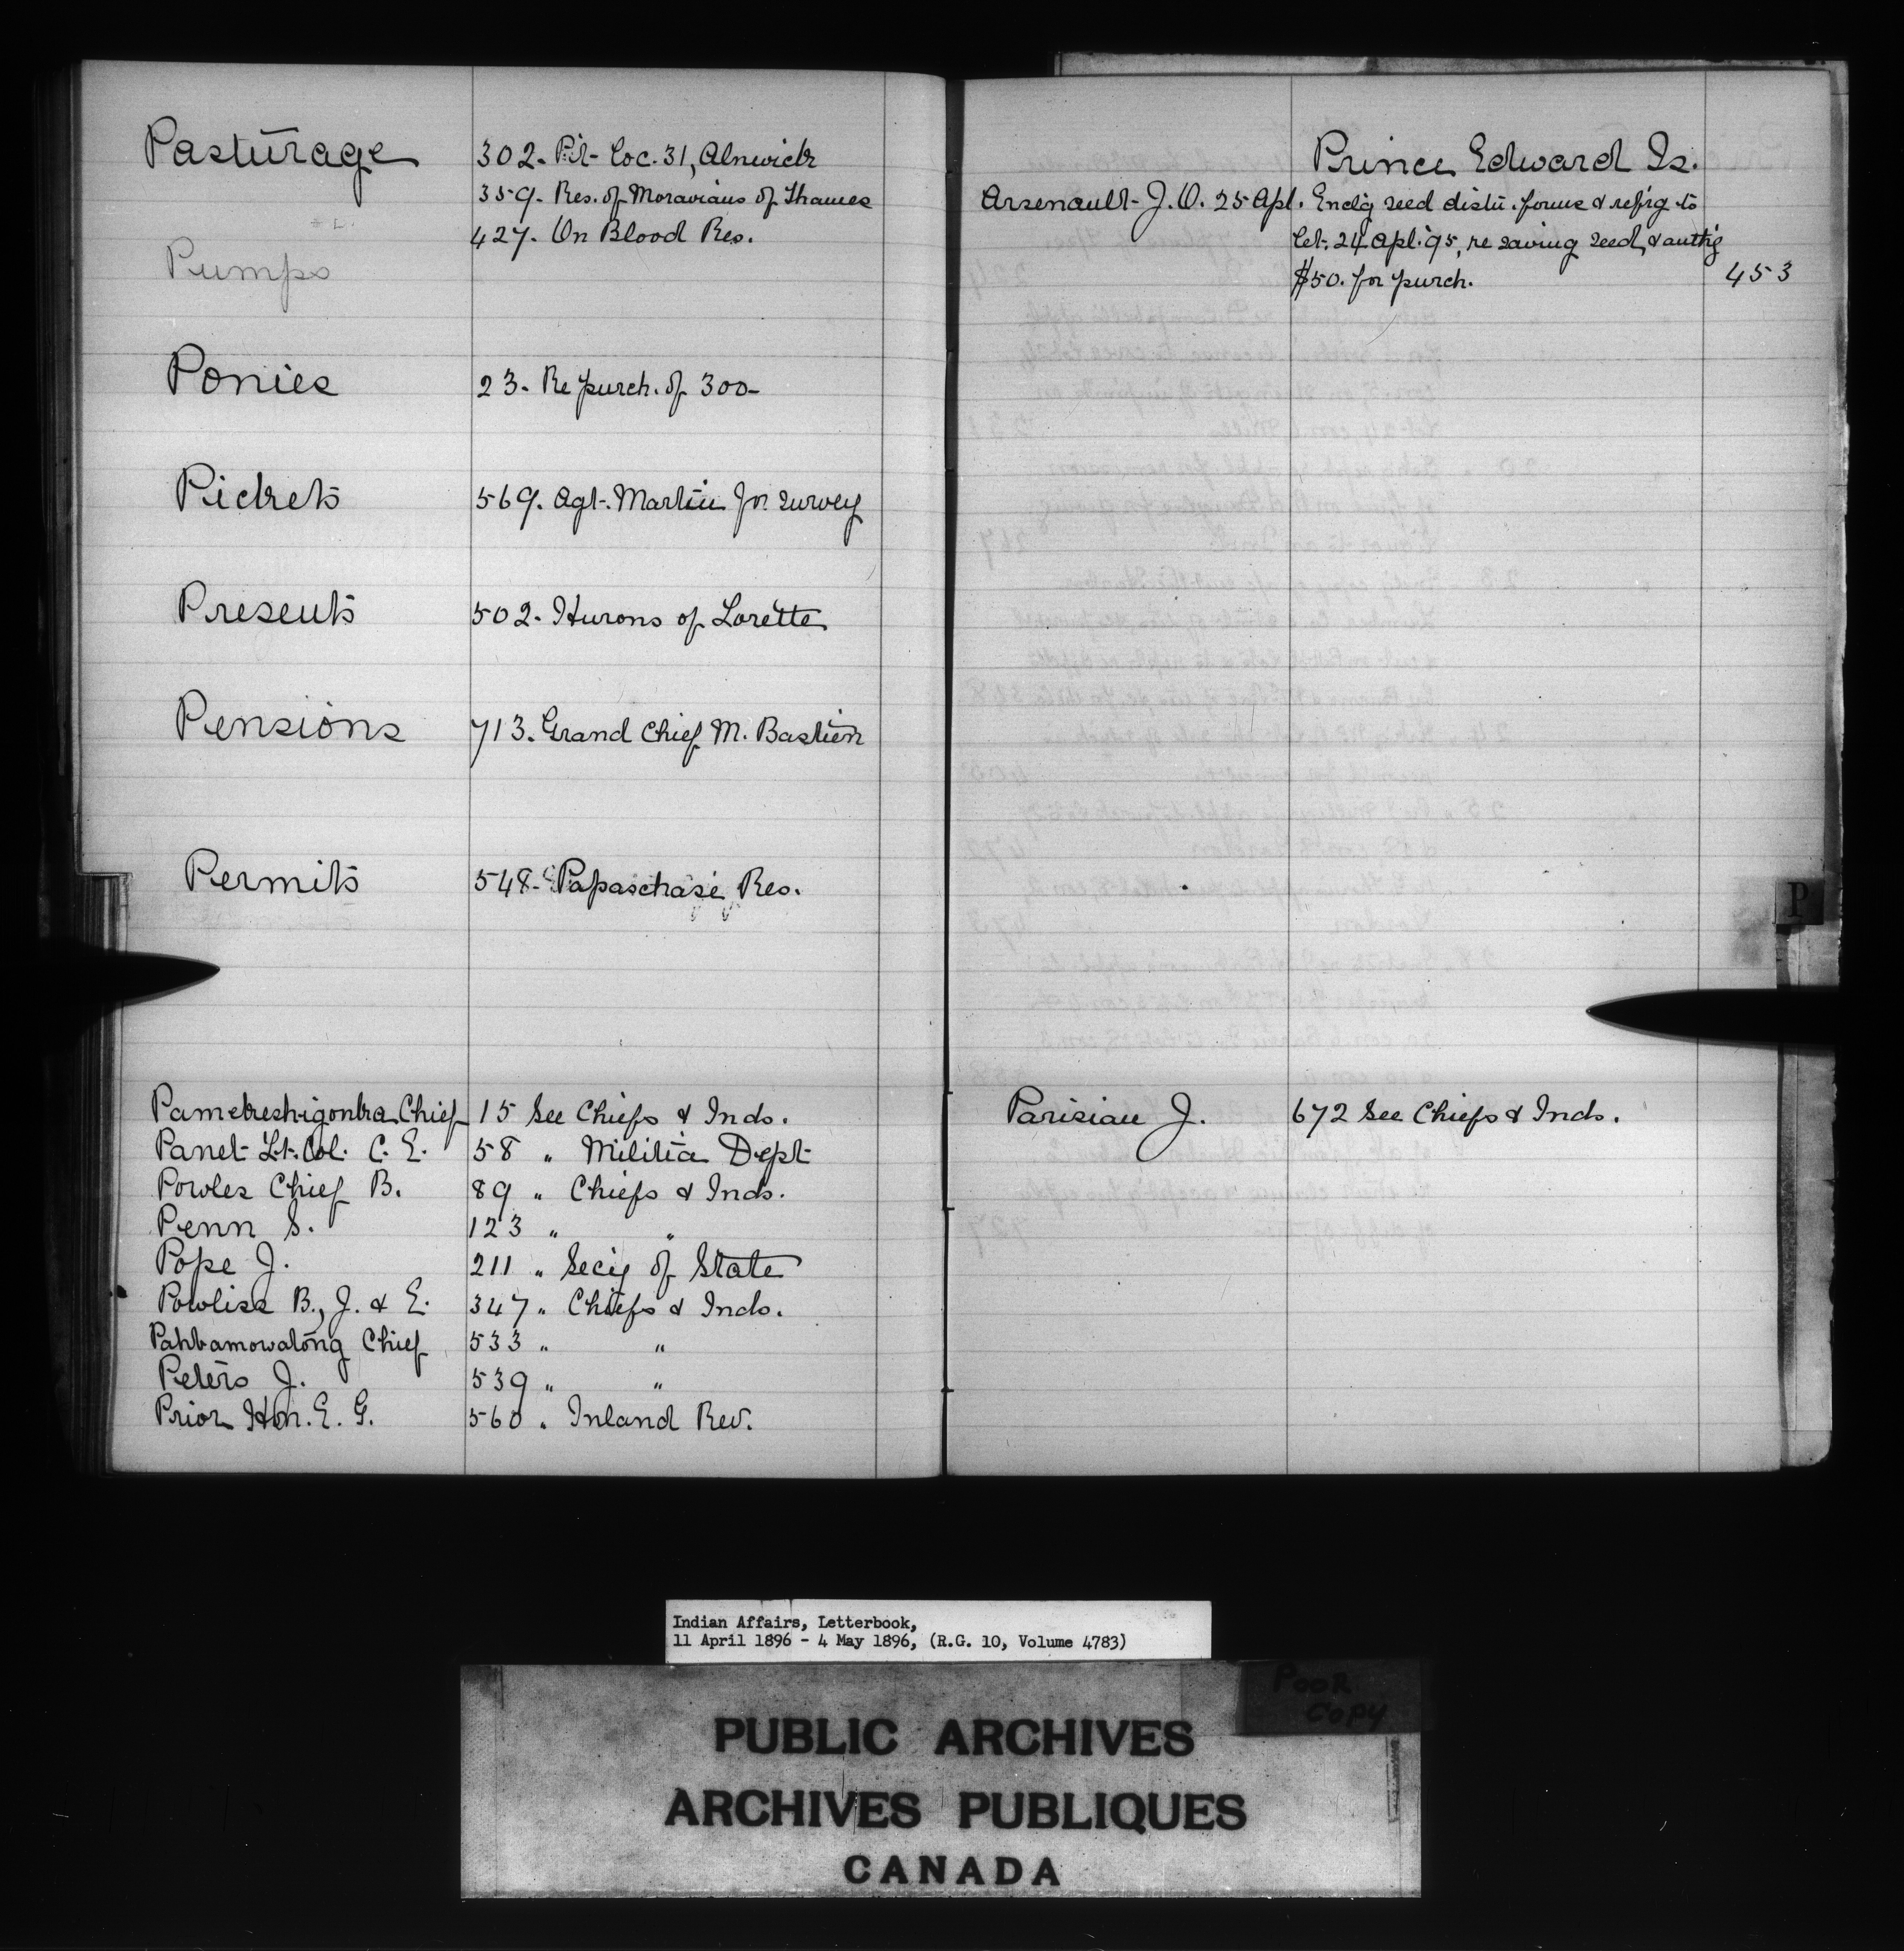 Pasturage 302. Pt. Loc. 31, Alnwick
359. Res. of Moravians of Thames
427. On Blood Res.
Pumps
Ponies 23. Re purch. of 300
Pickets 569. Agt. Martin for survey
Presents 502. Hurons of Lorette
Pensions 713. Grand Chief M. Bastien
Permits 548. Papaschase Res.
Chief 15 See Chiefs & Inds.
Panet Lt. Col. C. E. 58 " Militia Dept
Powles Chief B. 89 " Chiefs & Inds.
Penn S. 123 " "
Pope J. 211 " Secy of State
Powliss B., J. & E. 347 " Chiefs & Inds.
Pahbamowatong Chief 533 " "
Peters J. 539 " "
Prior Hon. E. G. 560 " Inland Rev.
Prince Edward Is.
Arsenault J. O. 25 Apl. Enclg seed distn. forms & refrg to
let. 24 Apl. '95, re saving seed, & authg
$50. for purch. 453
P
Parisian J. 672 See Chiefs & Inds.
Indian Affairs, Letterbook,
11 April 1896 - 4 May 1896, (R.G. 10, Volume 4783)
POOR
COPY
PUBLIC ARCHIVES
ARCHIVES PUBLIQUES
CANADA